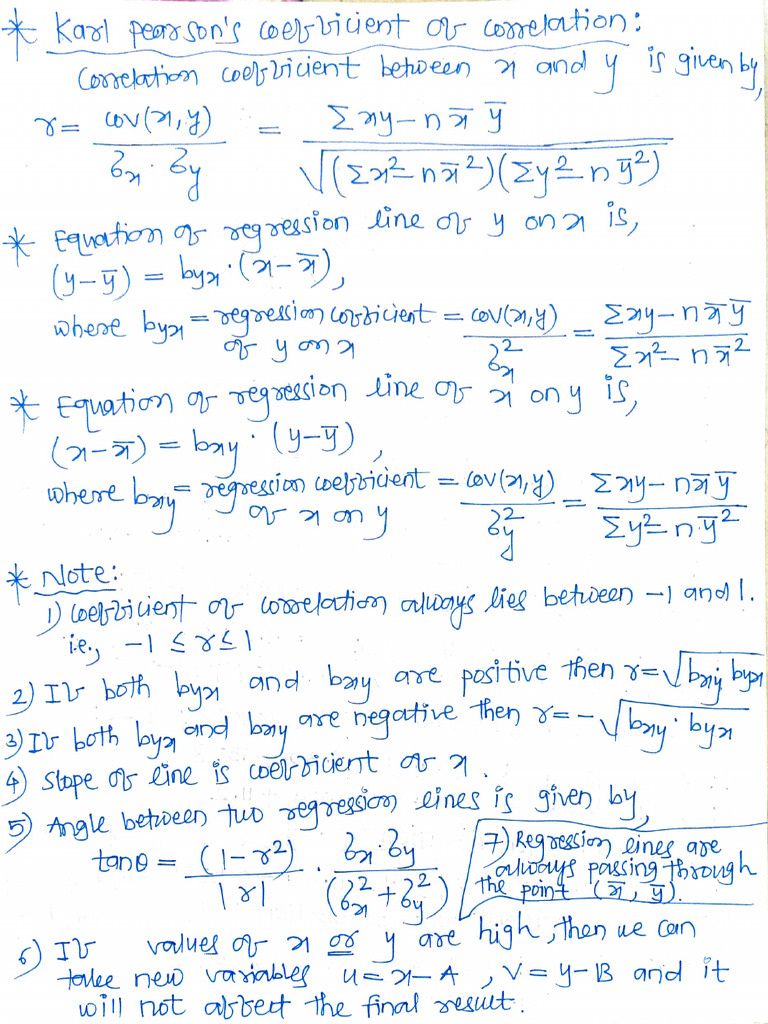 * Karl Pearson's coefficient of correlation:
Correlation coefficient between x and y is given by,
r = cov(x,y) / σx · σy = Σxy - n x̄ ȳ / √(Σx² - n x̄²)(Σy² - n ȳ²)
* Equation of regression line of y on x is,
(y - ȳ) = byx · (x - x̄),
where byx = regression coefficient of y on x = cov(x,y) / σx² = Σxy - n x̄ ȳ / Σx² - n x̄²
* Equation of regression line of x on y is,
(x - x̄) = bxy · (y - ȳ),
where bxy = regression coefficient of x on y = cov(x,y) / σy² = Σxy - n x̄ ȳ / Σy² - n ȳ²
* Note:
1) Coefficient of correlation always lies between -1 and 1.
i.e., -1 ≤ r ≤ 1
2) If both byx and bxy are positive then r = √bxy · byx
3) If both byx and bxy are negative then r = - √bxy · byx
4) Slope of line is coefficient of x.
5) Angle between two regression lines is given by,
tanθ = (1 - r²) / |r| · σx · σy / (σx² + σy²)
7) Regression lines are
always passing through
the point (x̄, ȳ).
6) If values of x or y are high, then we can
take new variables u = x - A, v = y - B and it
will not affect the final result.